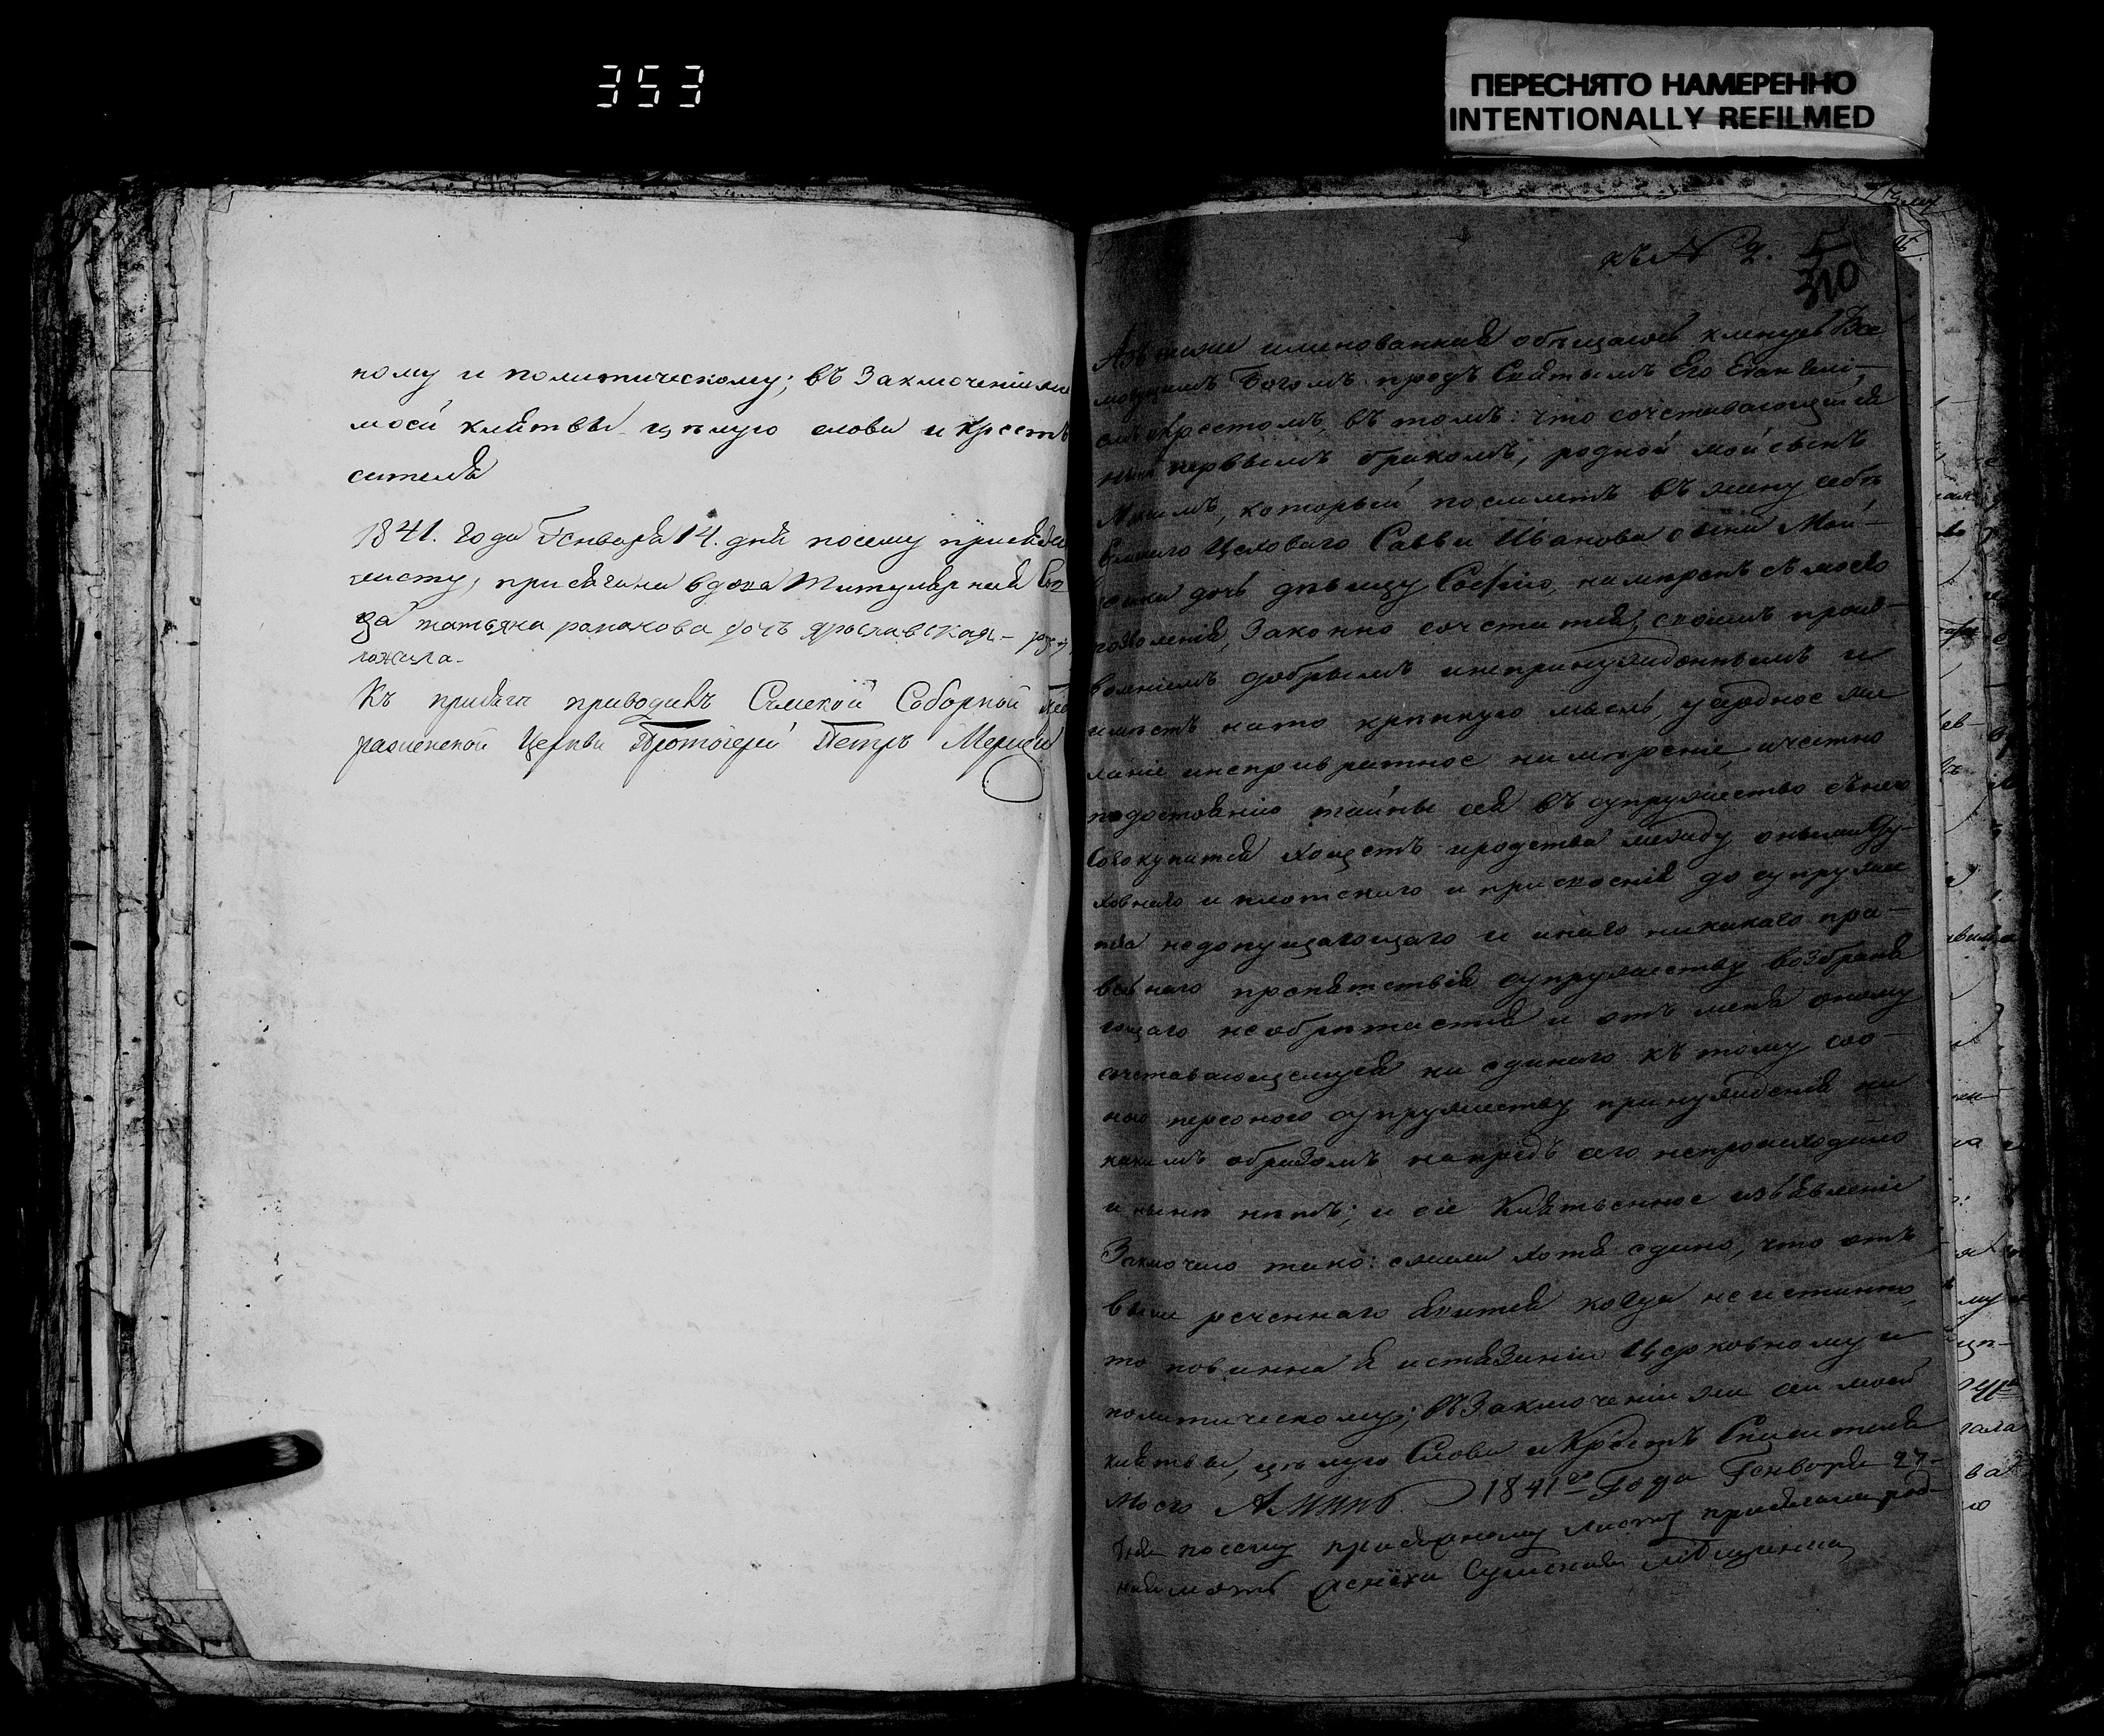 353
ПЕРЕСНЯТО НАМЕРЕННО
INTENTIONALLY REFILMED
ному и политическому; въ Заключеніи же
моей клятвы цѣлую слова и Крестъ
сителя
1841. года Генваря 14. дня посему присяжн
листу, присягала вдова Титулярная Сов
ца татьяна дочъ ярославская - ру
ложила.
Къ присягѣ приводилъ Сумской Соборной
раженской Церкви Протоіерей Петръ
къ № 2. 5
310
Азъ ниже именованная обѣщаюсь и клянусь Все
могущимъ Богомъ предъ Святымъ Его Евангелі-
емъ и Крестомъ, въ томъ: что сочетавающійся
первымъ бракомъ, родной мой сынъ
который поемлетъ въ жену себѣ
Цеховаго Саввы Иванова сына
дочь дѣвицу Софію, намѣренъ съ моего
позволенія, Законно сочетатся, своимъ произ-
воленіемъ добрымъ и непринужденнымъ и
имѣетъ на то крѣпкую мысль, усердное же
ланіе и непревратное намѣреніе, и честно
по достоянію тайны сея въ супружество съ нею
совокупится хощетъ и родства между оными Ду-
ховнаго и плотскаго и прискоенія до супружес
тва недопущающаго и инаго никакаго пра-
вильнаго препятствія супружеству возбраня
ющаго необрѣтается и отъ меня оному
сочетавающемуся ни единаго къ тому соо-
ною персоною супружеству принужденія ни
какимъ образомъ напредъ сего непроисходило
и нынѣ нѣтъ; и сіе Клятвенное изъявленіе
Заключаю тако: ежели хотя едино, что отъ
выше реченнаго явится когда неистинно,
то повинна я истязанію Церковному и
политическому; въ Заключеніи же сей моей
клятвы, цѣлую Слова и Крестъ Спасителя
Моего Аминь. 1841го Года Генваря 27-
дня посему присяжному листу присягала род-
ная мать Сумская мѣщанка